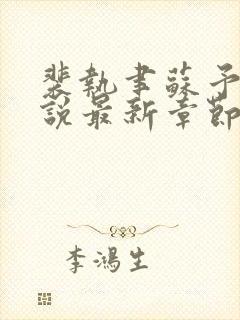 裴執聿蘇予
說最新章節
李鴻生